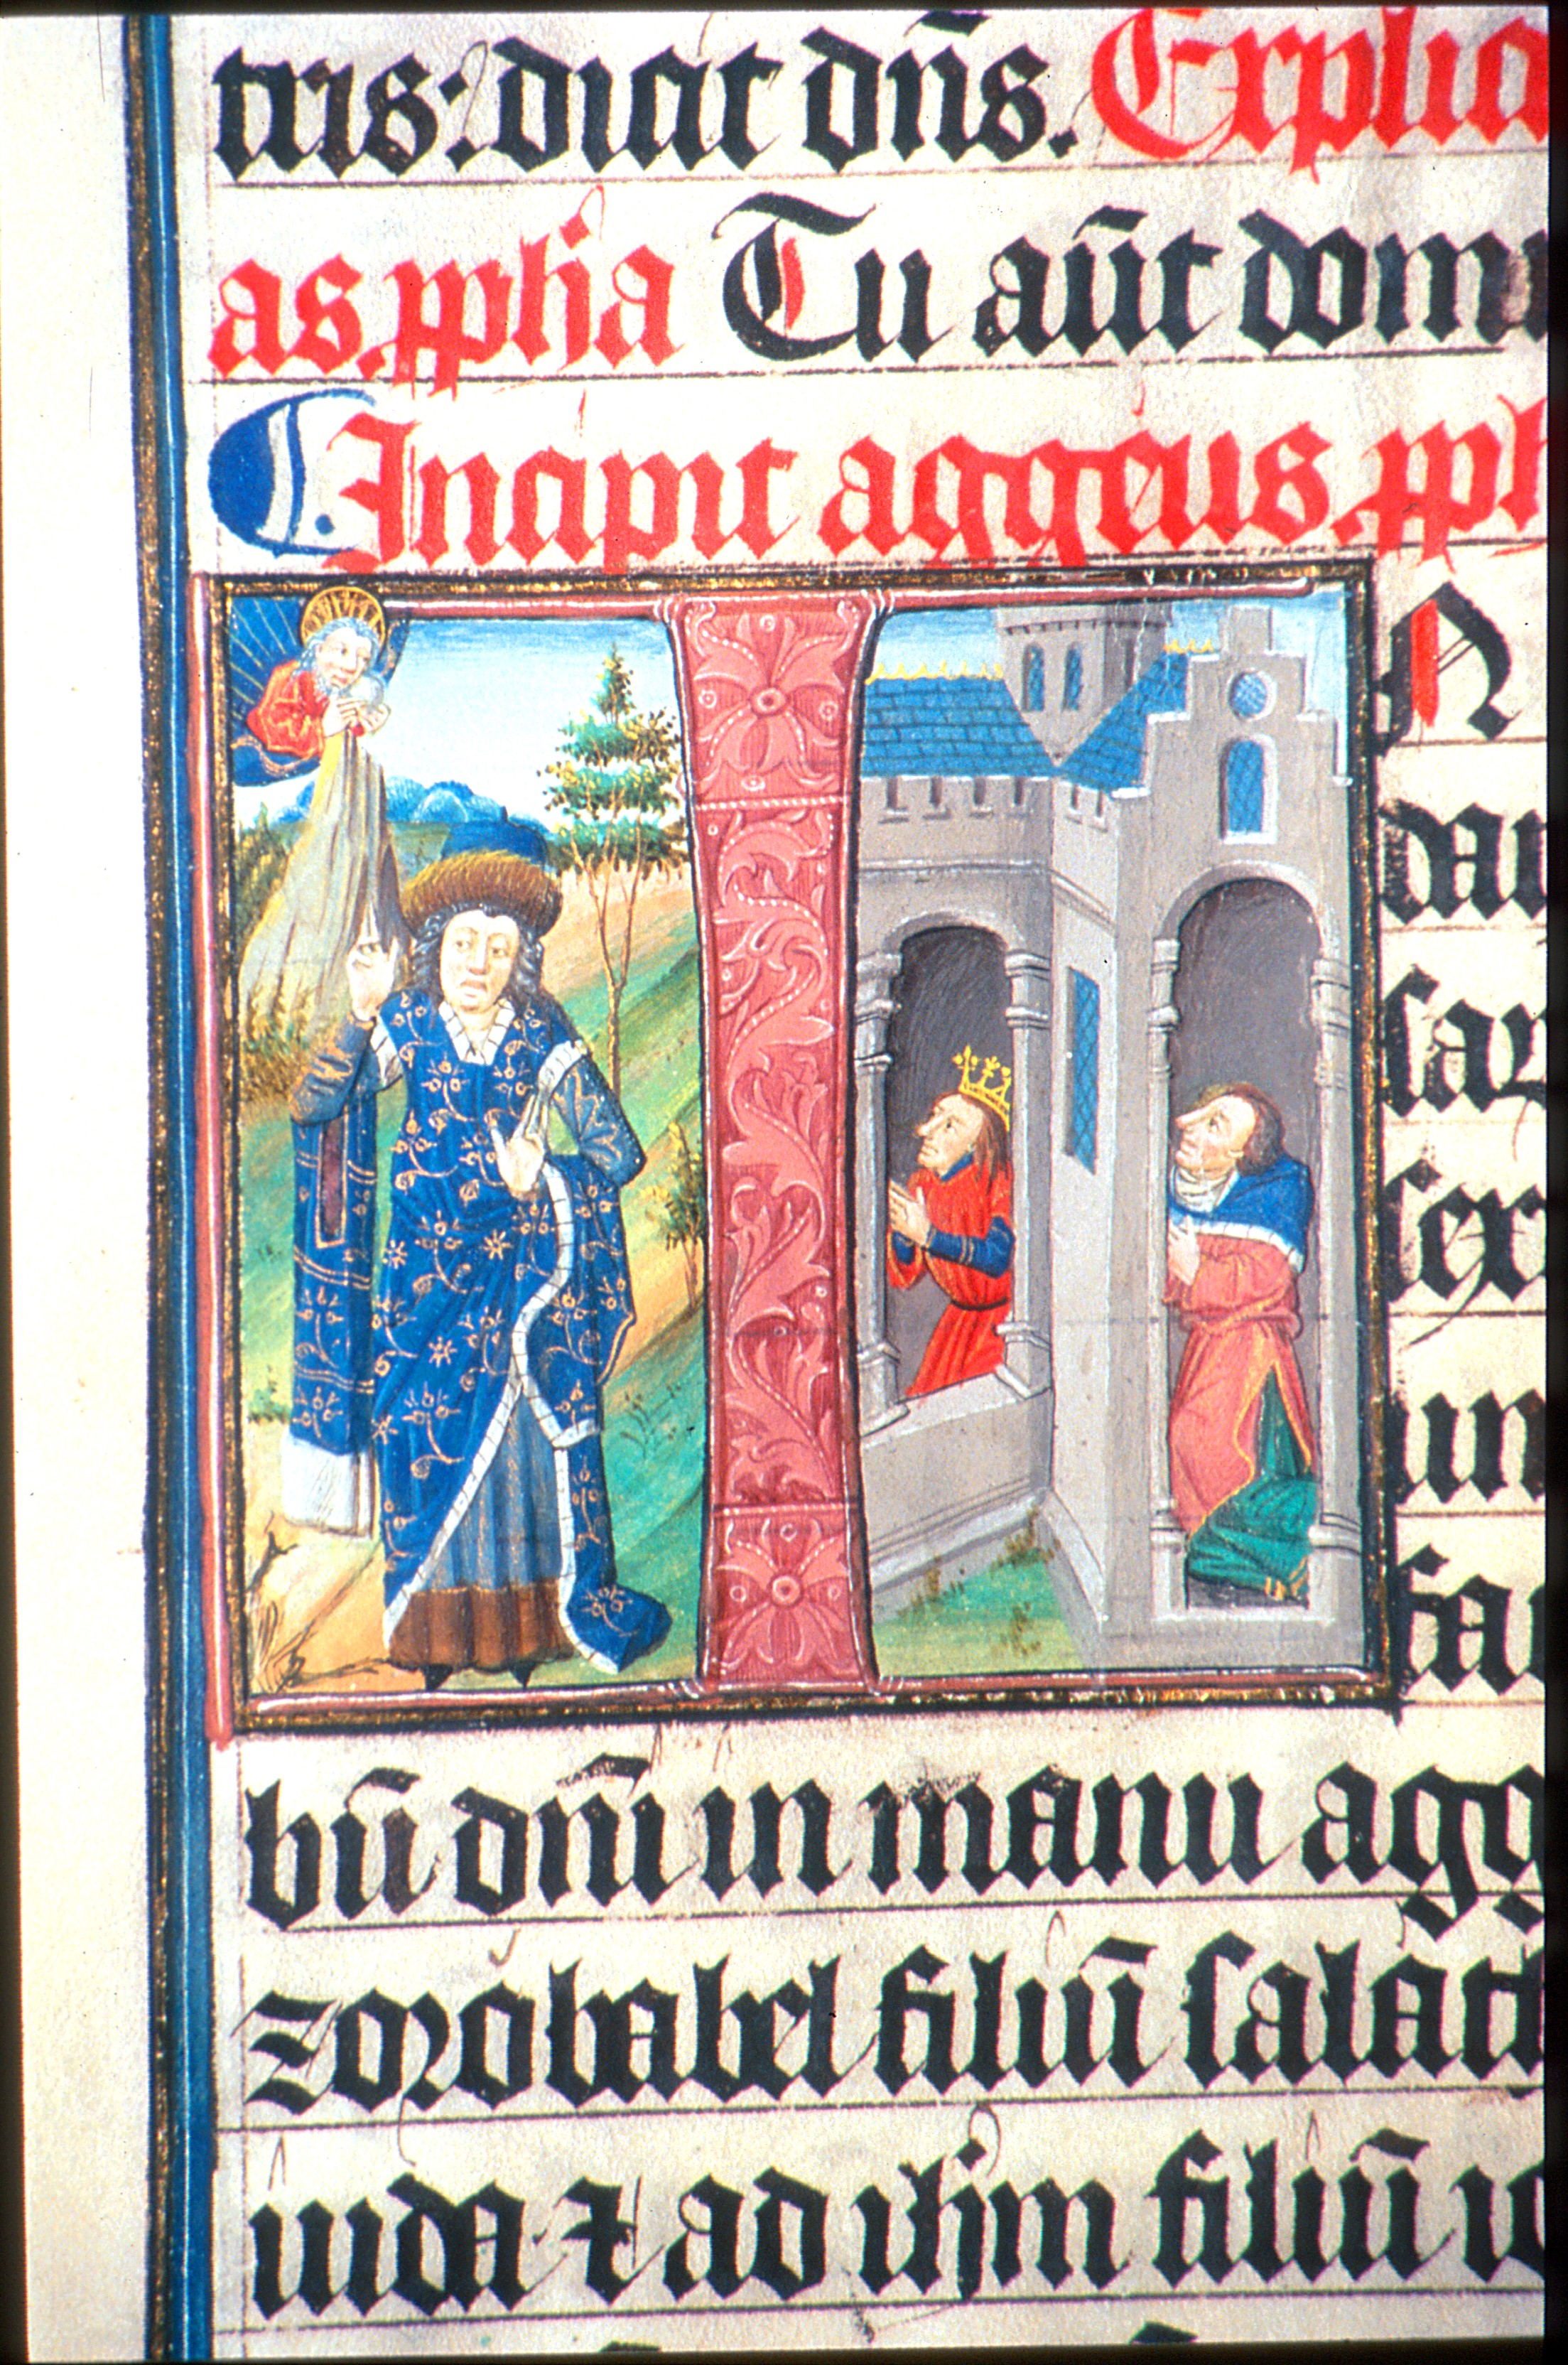 tris: dicit dn̄s. Explic
as ꝓph̄ia Tu aūt domi
Incipit aggeus ꝓph
IN
dar
sext
un
bū dn̄i in manu agg
zorobabel filiū salat
iuda ⁊ ad ih̄m filiū io